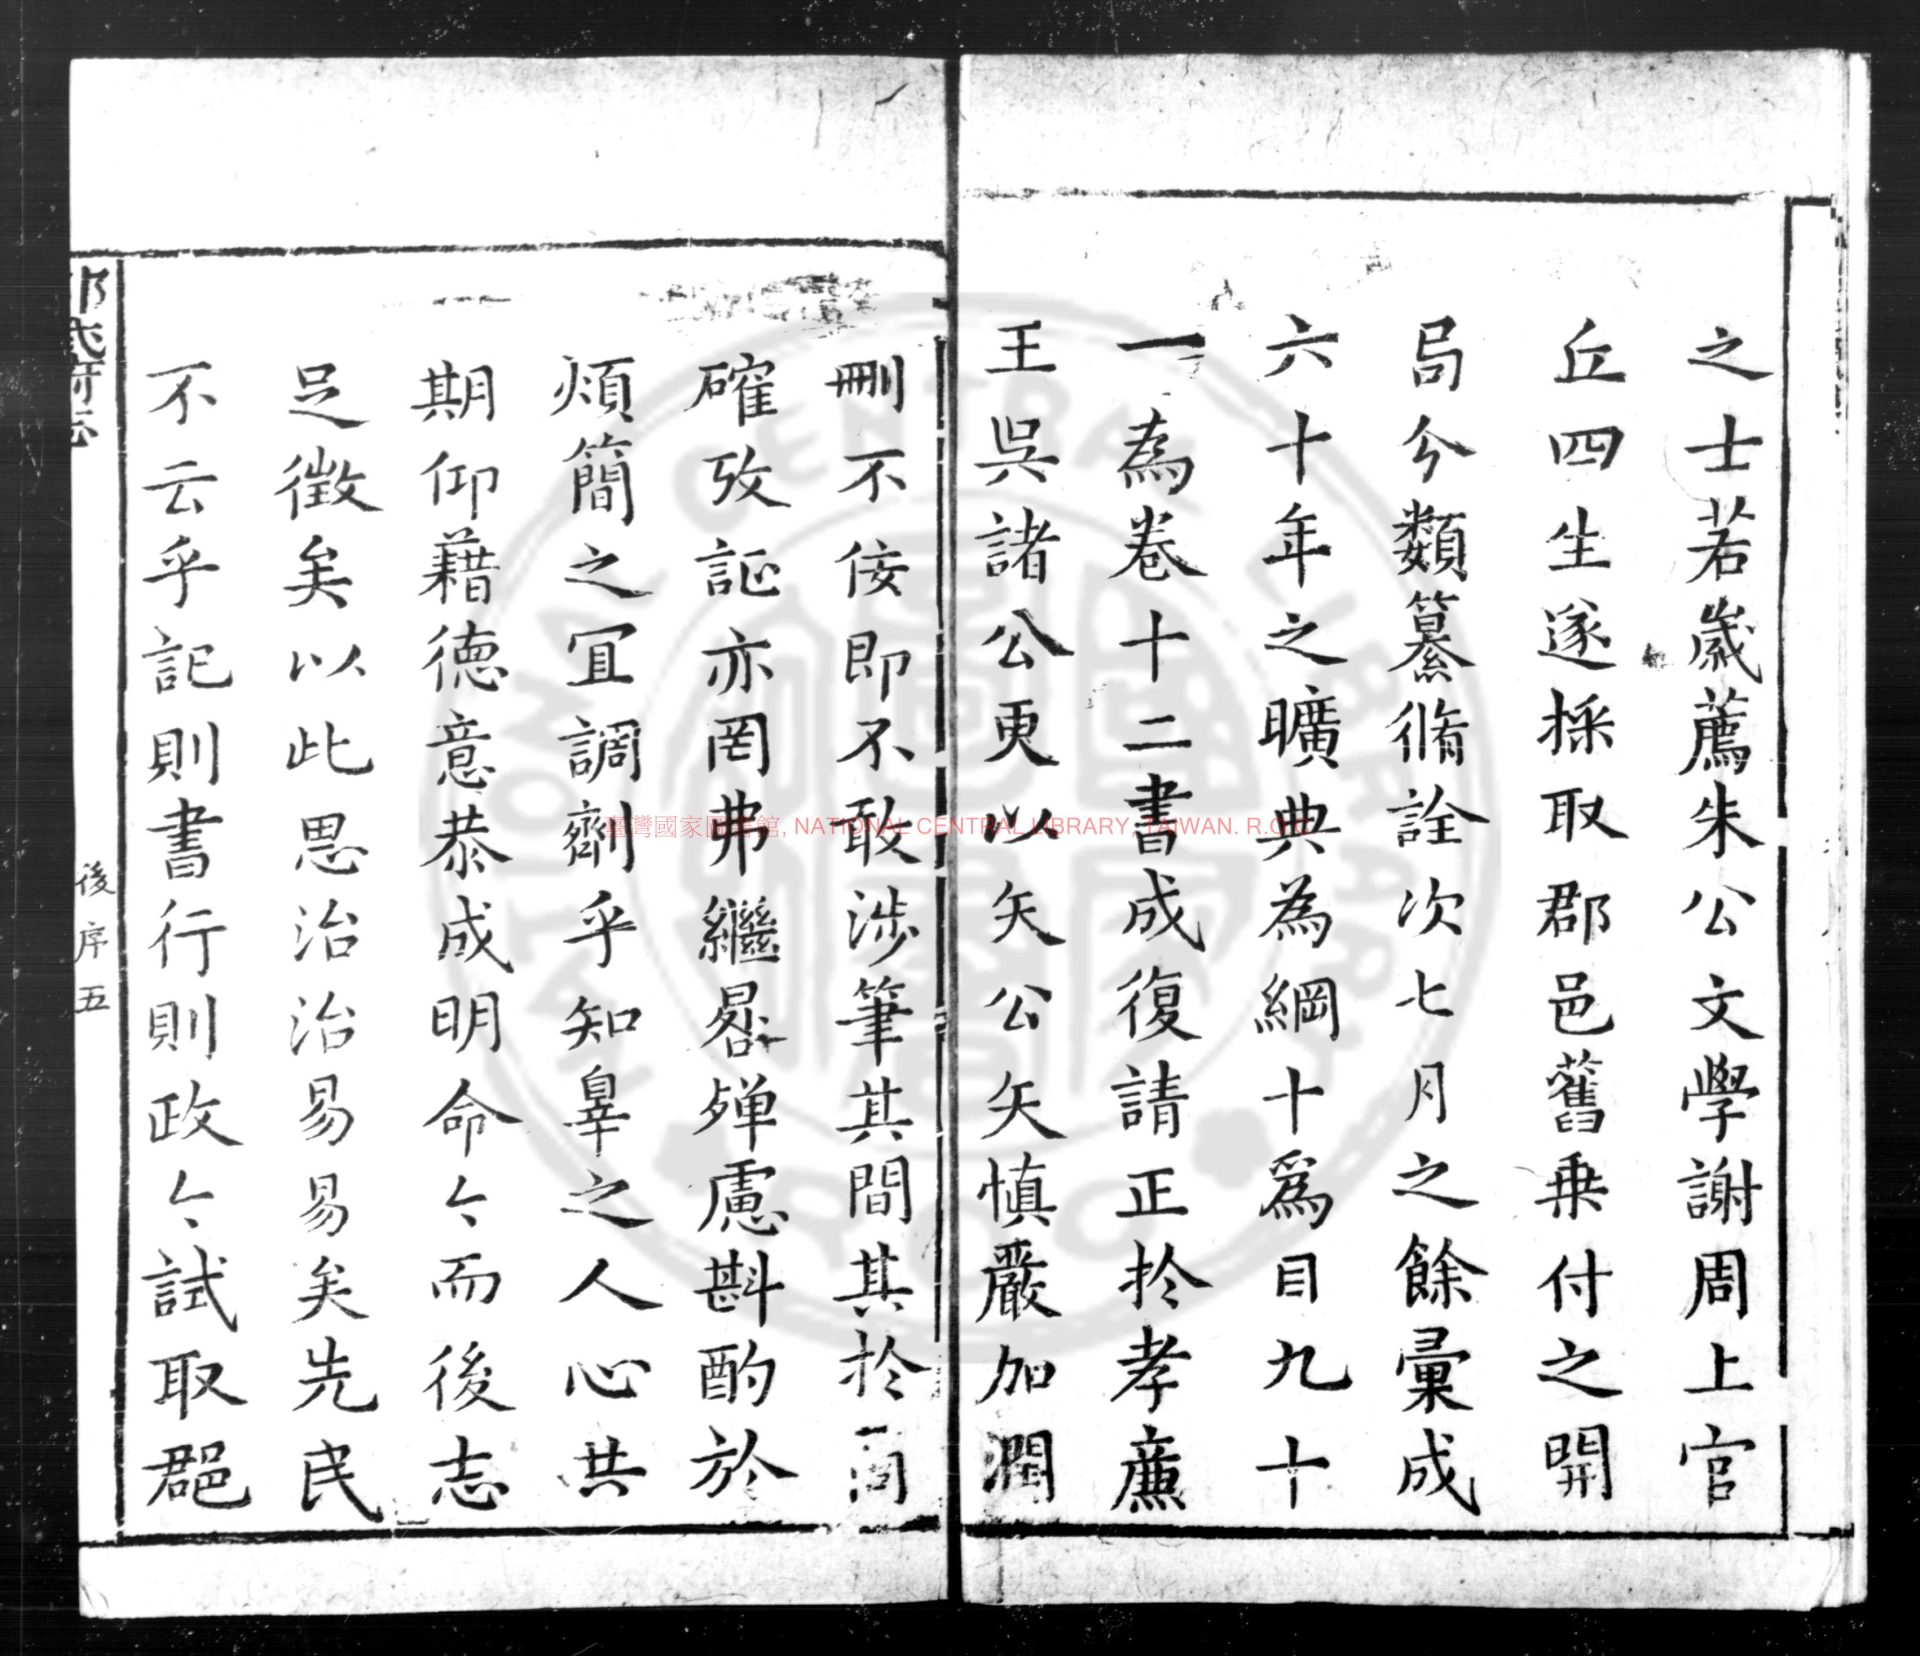 之士若歲薦朱公文學謝周上官
丘四生遂採取郡邑舊乗付之開
局今類纂脩詮次七月之餘彚成
六十年之曠典為綱十爲目九十
一為卷十二書成復請正扵孝廉
王吳諸公更以矢公矢慎嚴加潤
刪不佞即不敢涉筆其間其扵
確攷証亦罔弗繼晷殫慮斟酌於
煩簡之宜調劑乎知辠之人心共
期仰藉德意恭成明命亽而後志
足徵矣以此思治治易易矣先民
不云乎記則書行則政亽試取郡
邵武府志
後序 五
臺灣國家圖書館, NATIONAL CENTRAL LIBRARY, TAIWAN. R.O.C
NATIONAL CENTRAL LIBRARY ROC